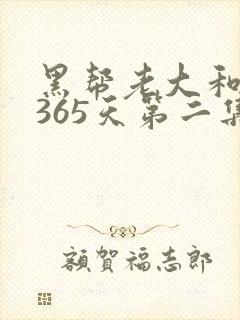 黑帮老大和
365天第二集
額賀福志郎